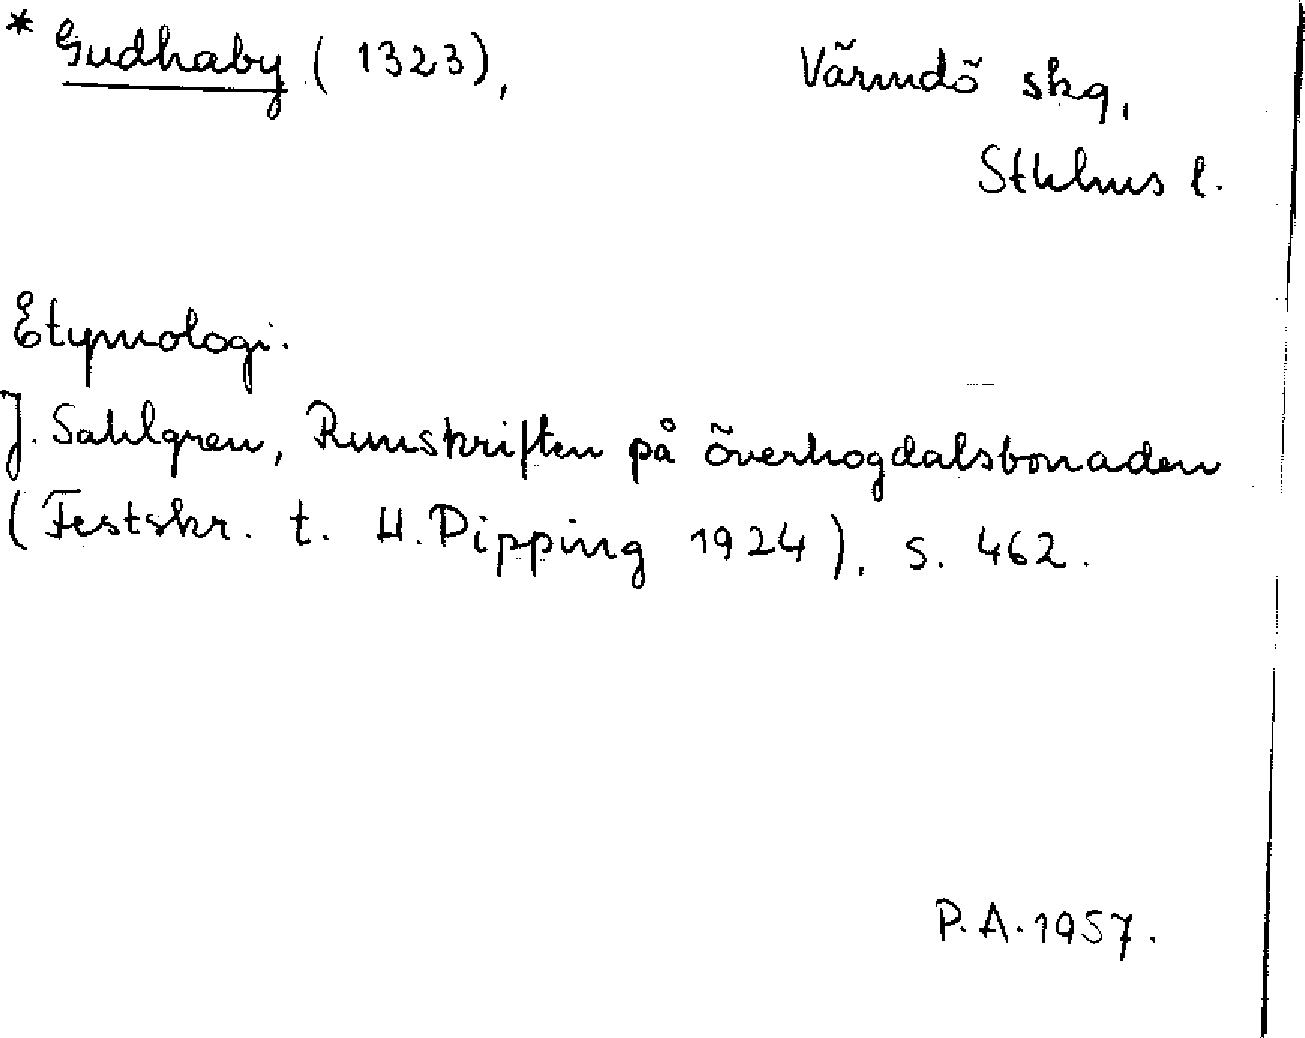 * Gudhaby (1323), Värmdö skg,
Stklms l.
Etymologi.
J. Sahlgren, Runskriften på överhogdalsbonaden
(Festskr. t. H. Pipping 1924), s. 462.
P.A. 1957.